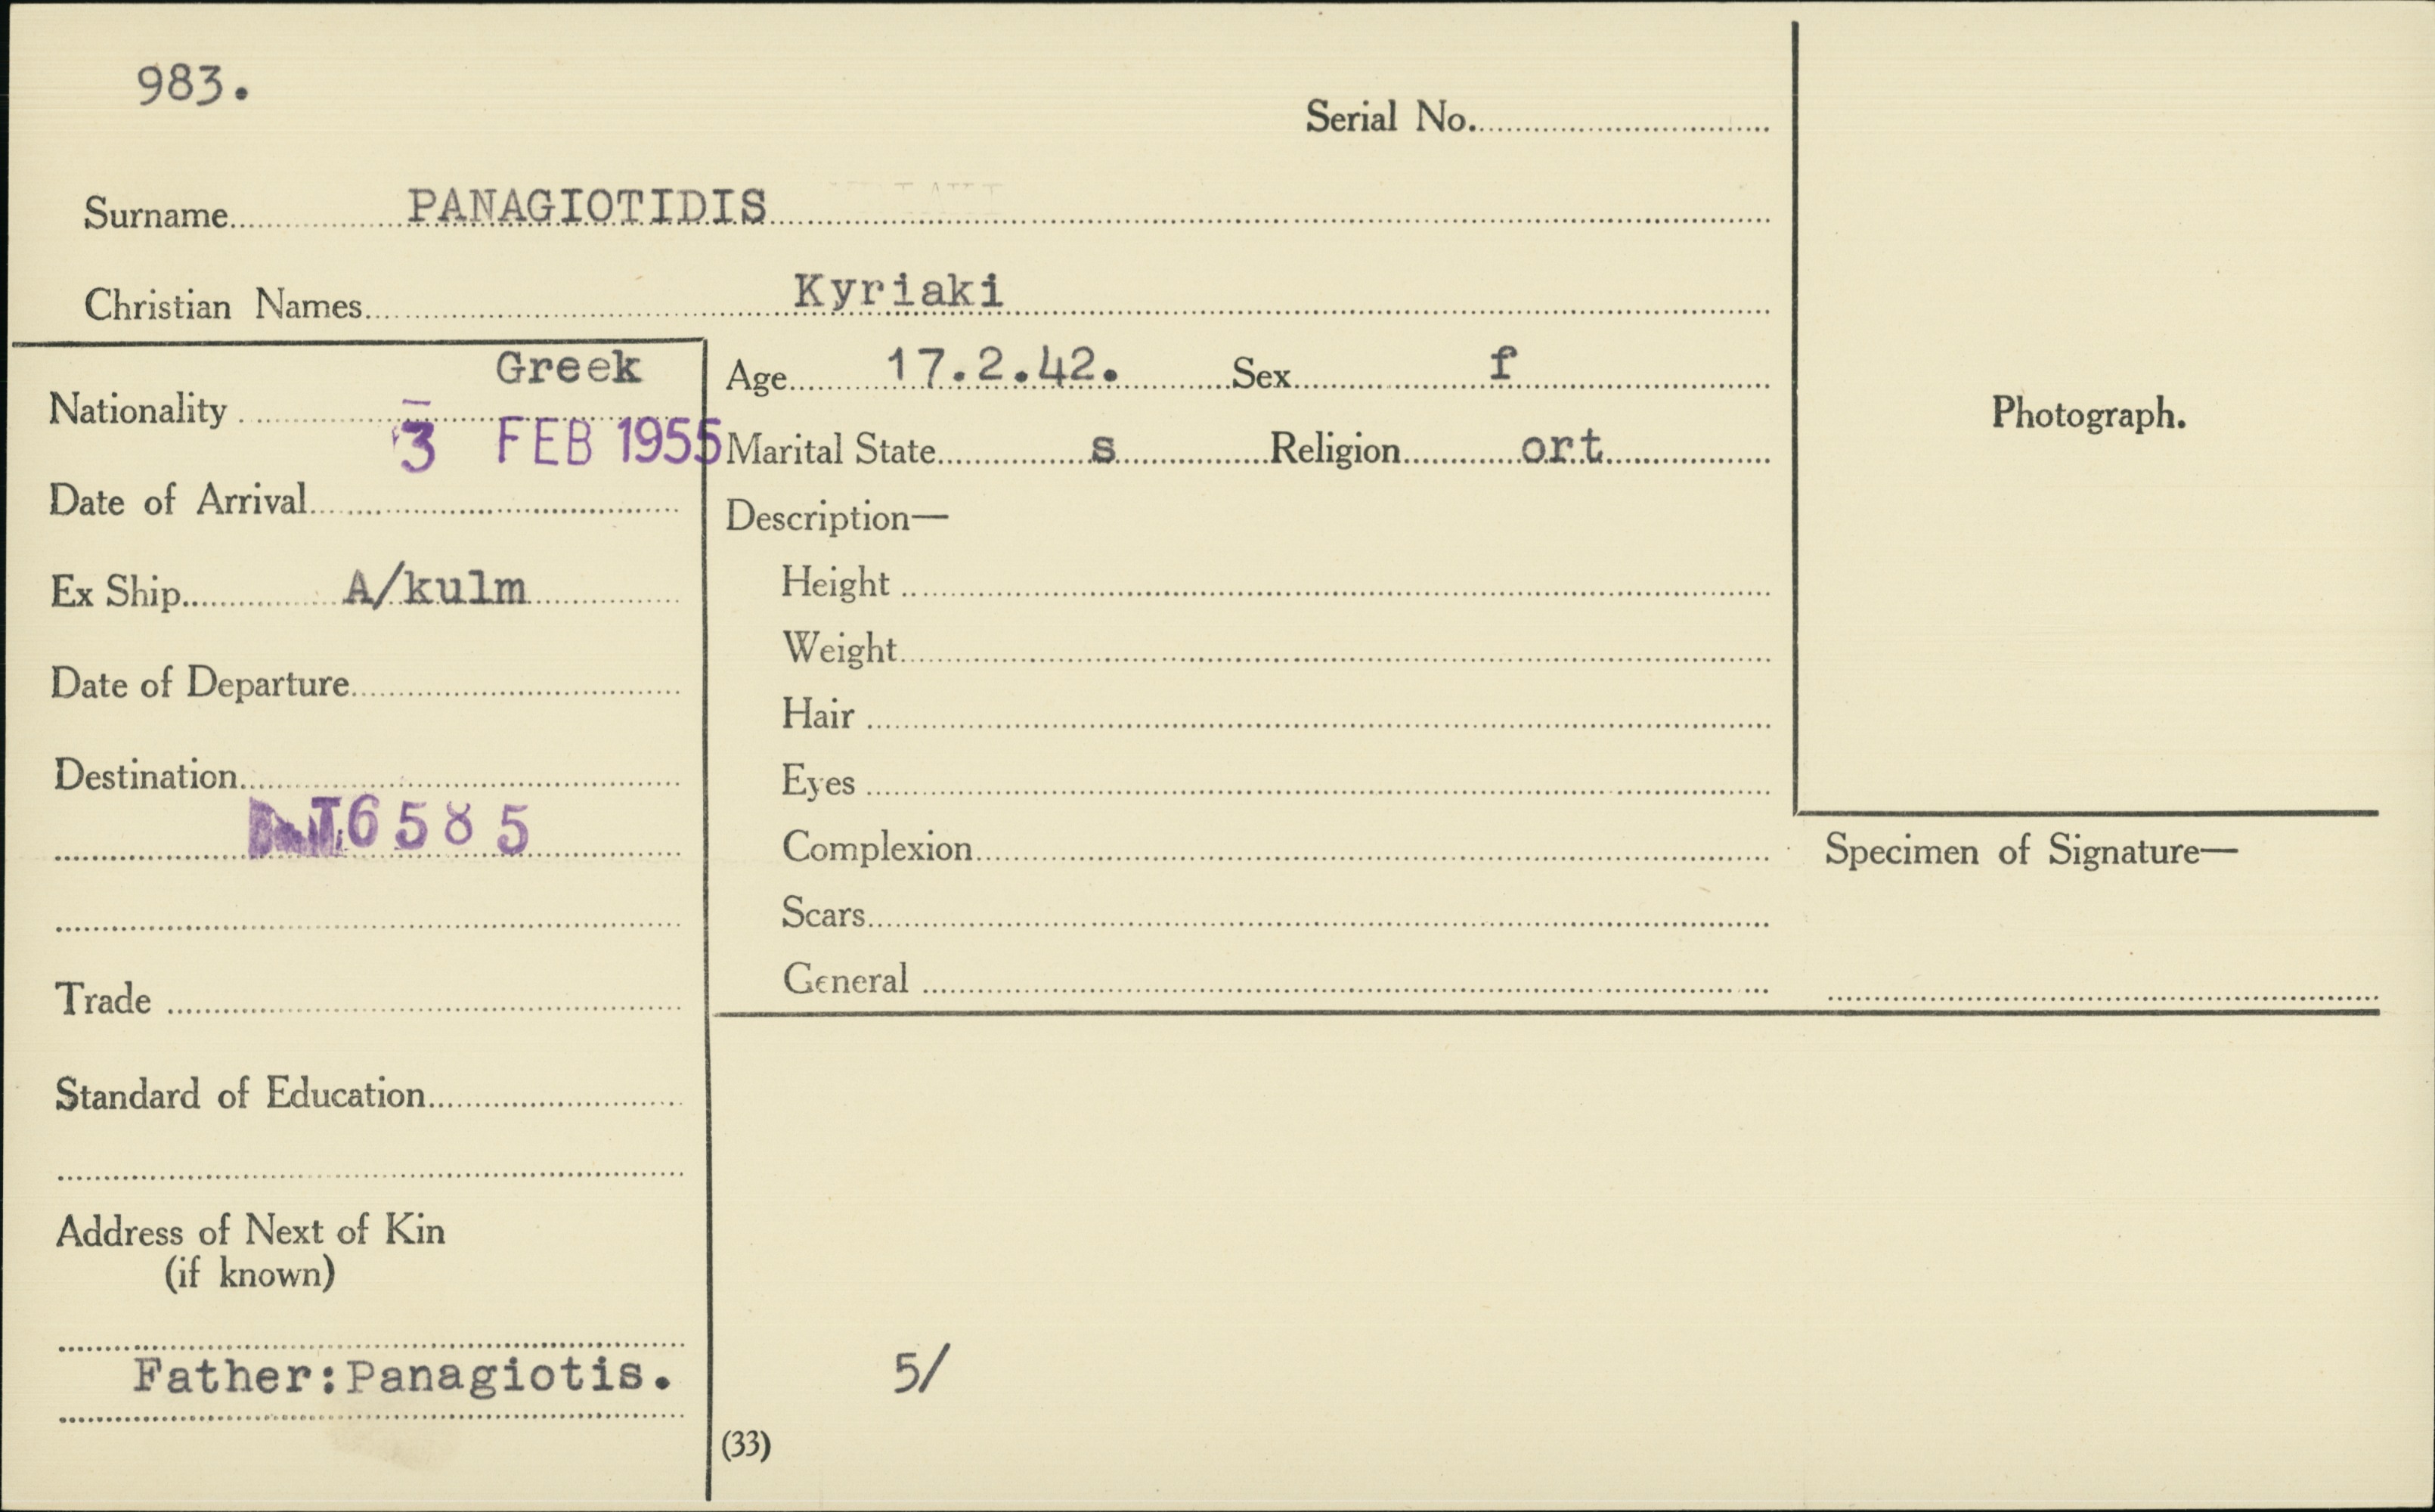 983.
Serial No.
Surname PANAGIOTIDIS
Christian Names Kyriaki
Nationality Greek
3 FEB 1955
Date of Arrival
Ex Ship A/kulm
Date of Departure
Destination
6585
Trade
Standard of Education
Address of Next of Kin
(if known)
Father:Panagiotis.
Age 17.2.42. Sex f
Marital State s Religion ort
Description—
Height
Weight
Hair
Eyes
Complexion
Scars
General
5/
(33)
Photograph.
Specimen of Signature—